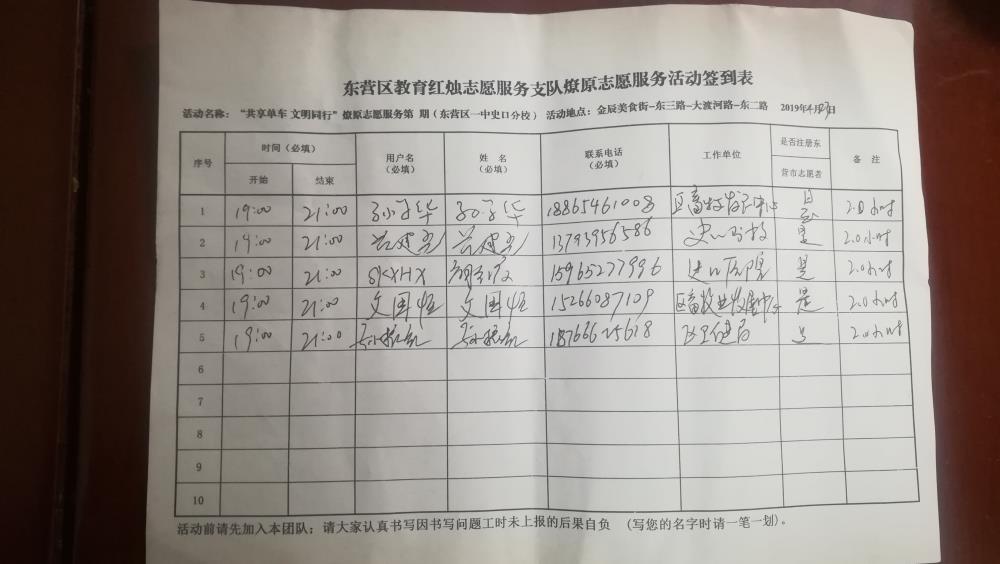 东营区教育红烛志愿服务支队燎原志愿服务活动签到表
活动名称：“共享单车 文明同行”燎原志愿服务第 期（东营区一中史口分校） 活动地点：金辰美食街-东三路-大渡河路-东二路 2019年4月27日
序号 时间（必填） 用户名（必填） 姓 名（必填） 联系电话（必填） 工作单位 是否注册东营市志愿者 备 注
开始 结束
1 19:00 21:00 18865461008 是 2.0小时
2 19:00 21:00 13793956586 是 2.0小时
3 19:00 21:00 SKXHX 15965277996 是 2.0小时
4 19:00 21:00 文国恒 文国恒 15266087109 是 2.0小时
5 19:00 21:00 18766625618 是 2.0小时
6
7
8
9
10
活动前请先加入本团队；请大家认真书写因书写问题工时未上报的后果自负 （写您的名字时请一笔一划）。